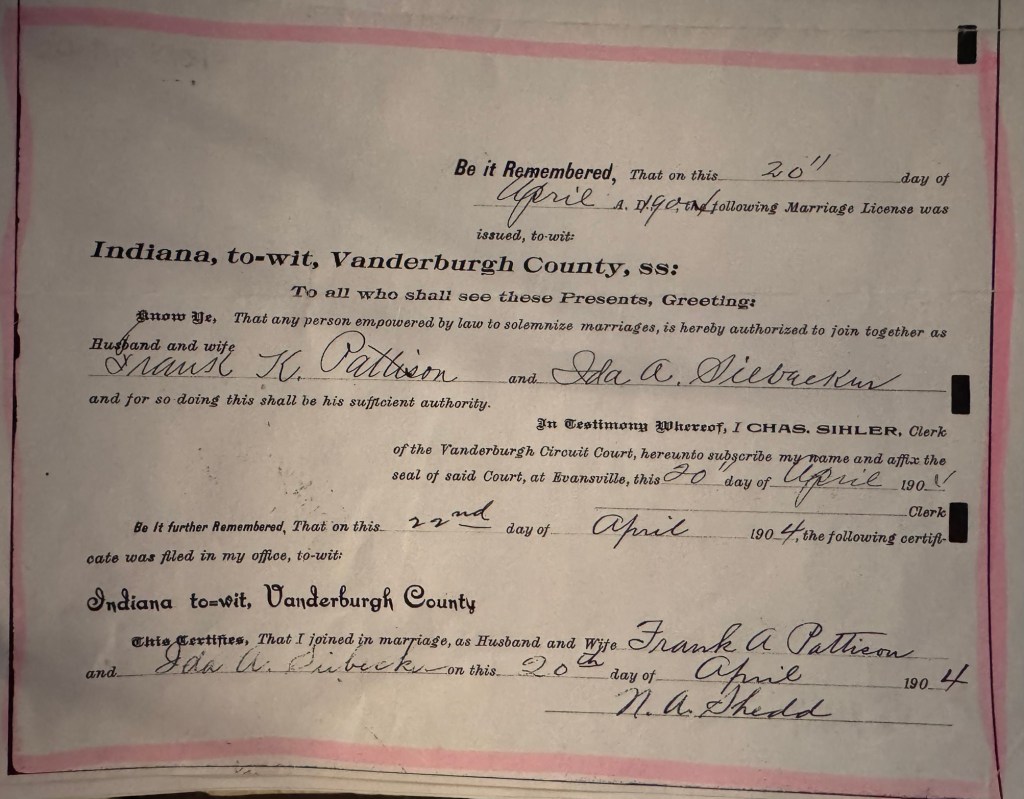 Be it Remembered, That on this 20" day of
April A. D. 1904, the following Marriage License was
issued, to-wit:
Indiana, to=wit, Vanderburgh County, ss:
To all who shall see these Presents, Greeting:
Know Ye, That any person empowered by law to solemnize marriages, is hereby authorized to join together as
Husband and wife
Frank K. Pattison and Ida A. Siebecker
and for so doing this shall be his sufficient authority.
In Testimony Whereof, I CHAS. SIHLER, Clerk
of the Vanderburgh Circuit Court, hereunto subscribe my name and affix the
seal of said Court, at Evansville, this 20" day of April 190
Clerk
Be it further Remembered, That on this 22nd day of April 1904, the following certifi-
cate was filed in my office, to-wit:
Indiana to=wit, Vanderburgh County
This Certifies, That I joined in marriage, as Husband and Wife Frank A Pattison
and Ida A. Siebecker on this 20th day of April 1904
N. A. Shedd